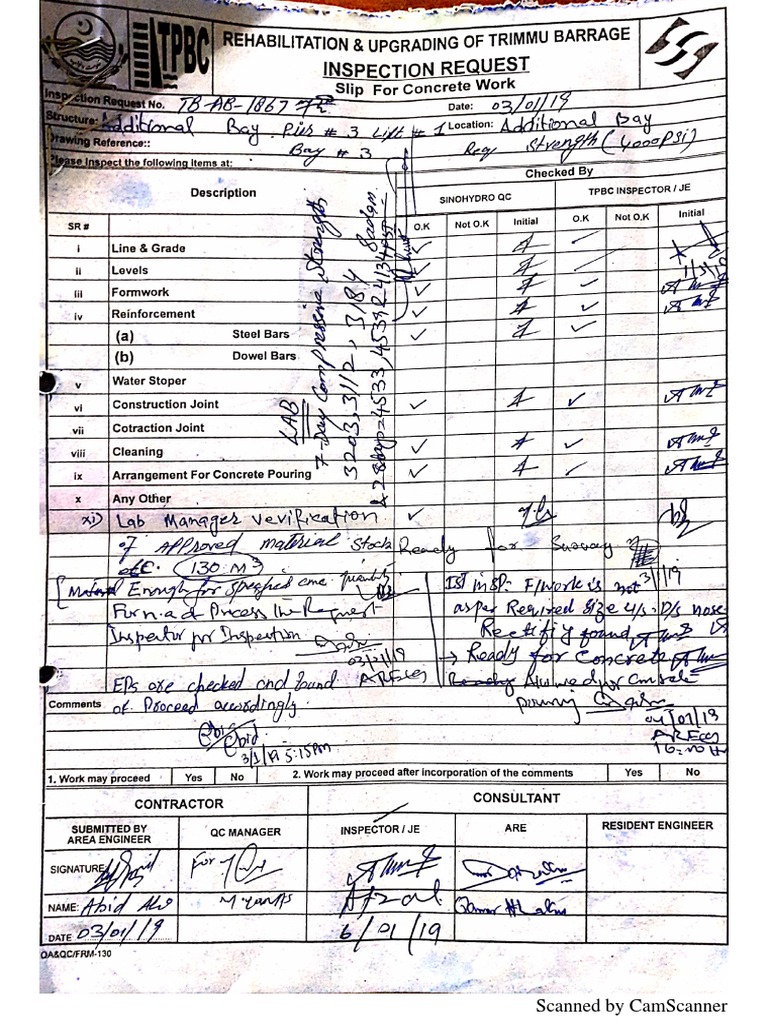 TPBC
REHABILITATION & UPGRADING OF TRIMMU BARRAGE
INSPECTION REQUEST
Slip For Concrete Work
Inspection Request No. TB-AB-1867
Date: 03/01/19
Structure: Additional Bay Pier # 3 Lift # 1
Location: Additional Bay
Drawing Reference:: Bay # 3
Req Strength (4000PSi)
Please Inspect the following items at:
Checked By
Description
SINOHYDRO QC
TPBC INSPECTOR / JE
SR #
O.K Not O.K Initial O.K Not O.K Initial
i Line & Grade ✓
ii Levels ✓
1/3/19
iii Formwork ✓ ✓
iv Reinforcement ✓ ✓
(a) Steel Bars ✓ ✓
(b) Dowel Bars
v Water Stoper
vi Construction Joint ✓ ✓
vii Cotraction Joint
viii Cleaning ✓ ✓
ix Arrangement For Concrete Pouring ✓ ✓
x Any Other
LAB
7-Day Compressive Strength
3203, 3112, 3184
& 28days = 4533, 4539
xi) Lab Manager verification ✓
of Approved material Stock
etc. (130 M3)
Ready for Survey
3/1/19
Material Enough for Specified conc. quantity
Process the Request
Inspector for Inspection
03/01/19
ARE
EPs are checked and found
ok Proceed accordingly.
Abid
3/1/19 5:15pm
1st insp: F/work is not
as per Required size u/s. D/s nose
Rectify found
→ Ready for Concrete
Allowed for Concrete
pouring
04/01/19
Comments
1. Work may proceed Yes No
2. Work may proceed after incorporation of the comments Yes No
CONTRACTOR
CONSULTANT
SUBMITTED BY AREA ENGINEER
QC MANAGER
INSPECTOR / JE
ARE
RESIDENT ENGINEER
SIGNATURE:
For
NAME: Abid
Afzal
DATE 03/01/19
6/01/19
QA&QC/FRM-130
Scanned by CamScanner